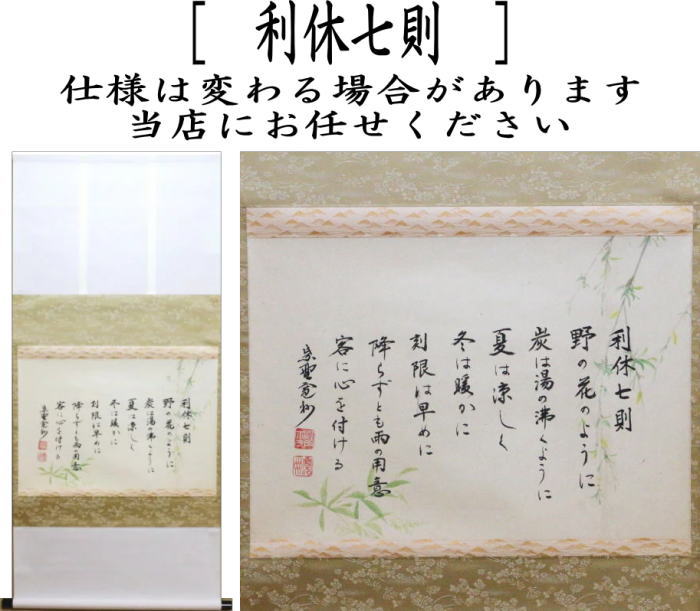 [ 利休七則 ]
仕様は変わる場合があります
当店にお任せください
利休七則
野の花のように
炭は湯の沸くように
夏は涼しく
冬は暖かに
刻限は早めに
降らずとも雨の用意
客に心を付ける
利休七則
野の花のように
炭は湯の沸くように
夏は涼しく
冬は暖かに
刻限は早めに
降らずとも雨の用意
客に心を付ける